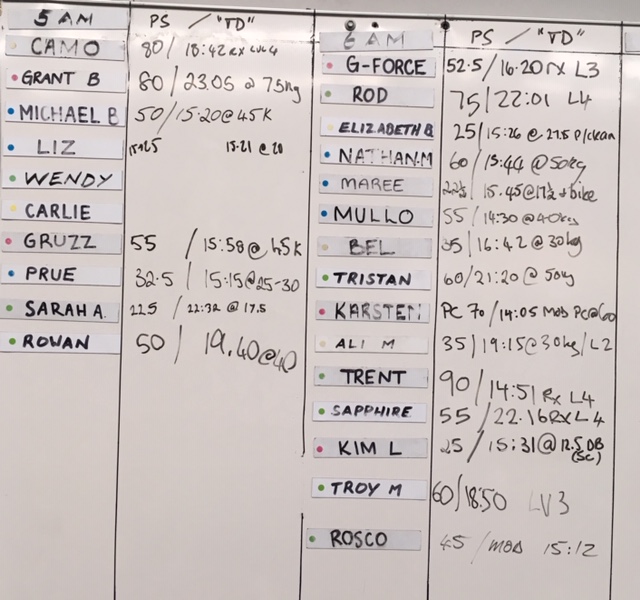 5 AM PS / "TD"
CAMO 80 / 18:42 RX LVL 4
GRANT B 80 / 23.05 @ 75kg
MICHAEL B 50 / 15:20 @ 45K
LIZ 15:21 @ 20
WENDY
CARLIE
GRUZZ 55 / 15:58 @ 45K
PRUE 32.5 / 15:15 @ 25-30
SARAH A. 22.5 / 22:32 @ 17.5
ROWAN 50 / 19.40 @ 40
6 AM PS / "TD"
G-FORCE 52.5 / 16:20 rx L3
ROD 75 / 22:01 L4
ELIZABETH B 25 / 15:26 @ 27.5 P/clean
NATHAN.M 60 / 15:44 @ 50kg
MAREE 22½ / 15.45 @ 17½ + bike
MULLO 55 / 14:30 @ 40kg
BEL 35 / 16:42 @ 30kg
TRISTAN 60 / 21:20 @ 50kg
KARSTEN PC 70 / 14:05 Mod PC@60
ALI M 35 / 19:15 @ 30kg / L2
TRENT 90 / 14:51 Rx L4
SAPPHIRE 55 / 22.16 RX L4
KIM L 25 / 15:31 @ 12.5 DB
(SC)
TROY M 60 / 18:50 LV3
ROSCO 45 / MOD 15:12